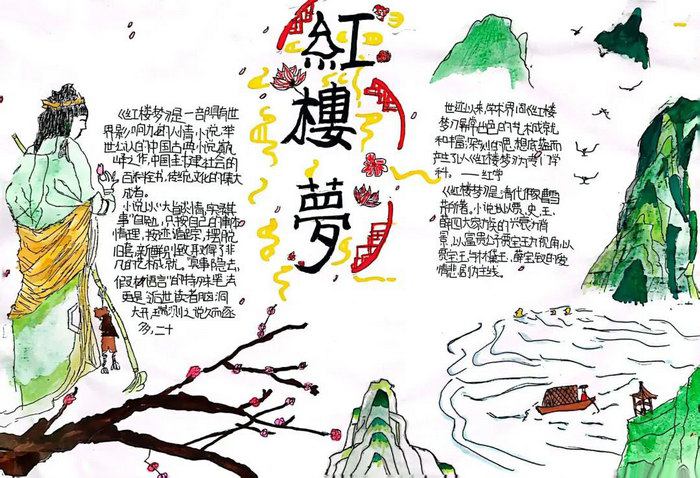 紅
樓
夢
《红楼梦》是一部具有世
界影响力的人情小说,举
世公认的中国古典小说巅
峰之作,中国封建社会的
百科全书,传统文化的集大
成者。
小说以"大旨谈情,实录其
事"自勉,只按自己的事体
情理,按迹追踪,摆脱
旧套,新鲜别致取得了非
凡的艺术成就。"真事隐去,
假语村言"的特殊笔法
更是后世读者脑洞
大开,揣测之说久而遂
多,二十
世纪以来,学术界因《红楼
梦》异常出色的艺术成就
和丰富深刻的思想底蕴而
产生了以《红楼梦》为专门学
科。——红学
《红楼梦》是,清代作家曹雪
芹所著。小说以贾、史、王、
薛四大家族的兴衰为背
景,以富贵公子贾宝玉为视角,以
贾宝玉与林黛玉、薛宝钗的爱
情悲剧为主线。